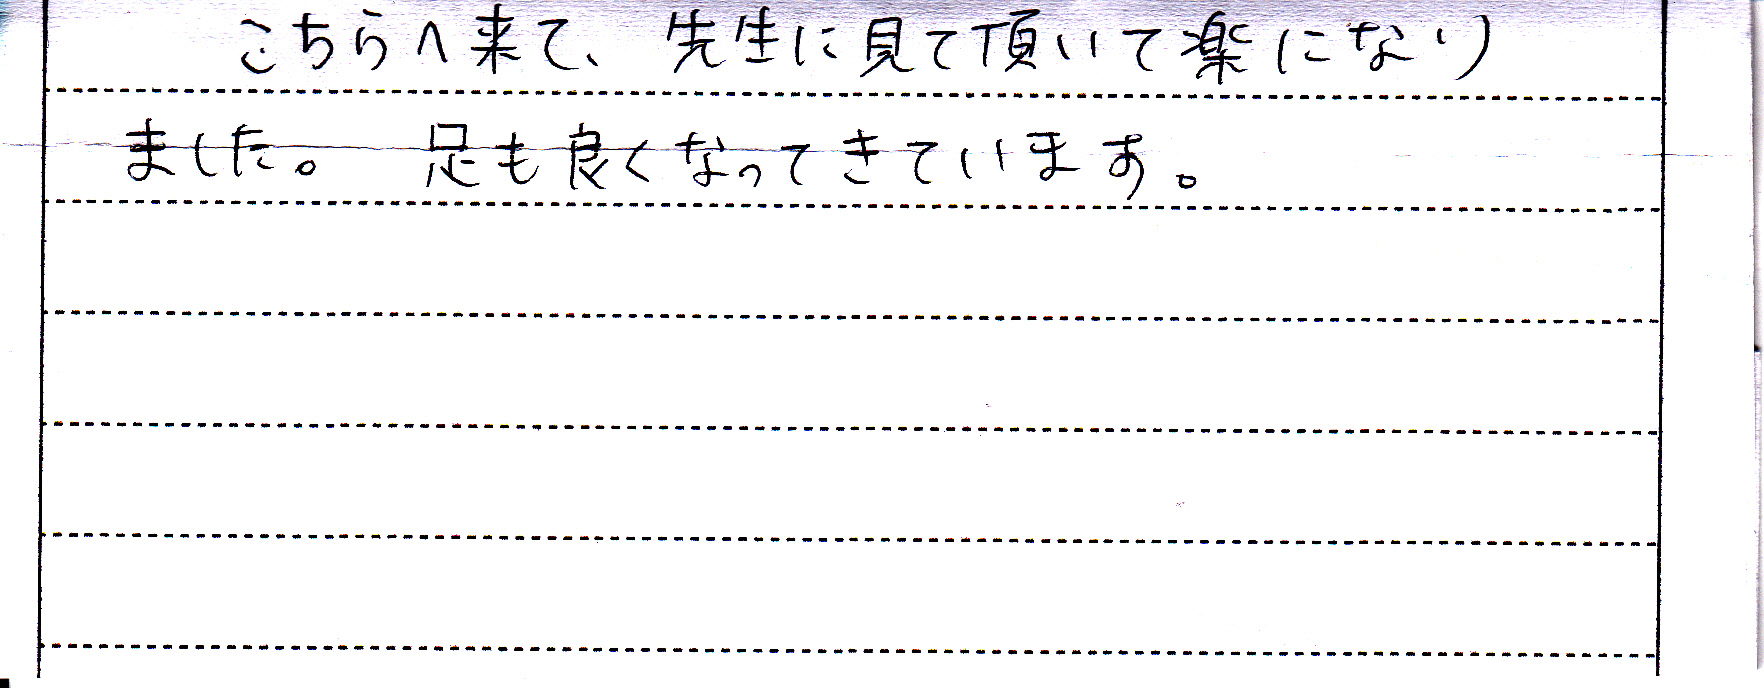 こちらへ来て、先生に見て頂いて楽になり
ました。 足も良くなってきています。